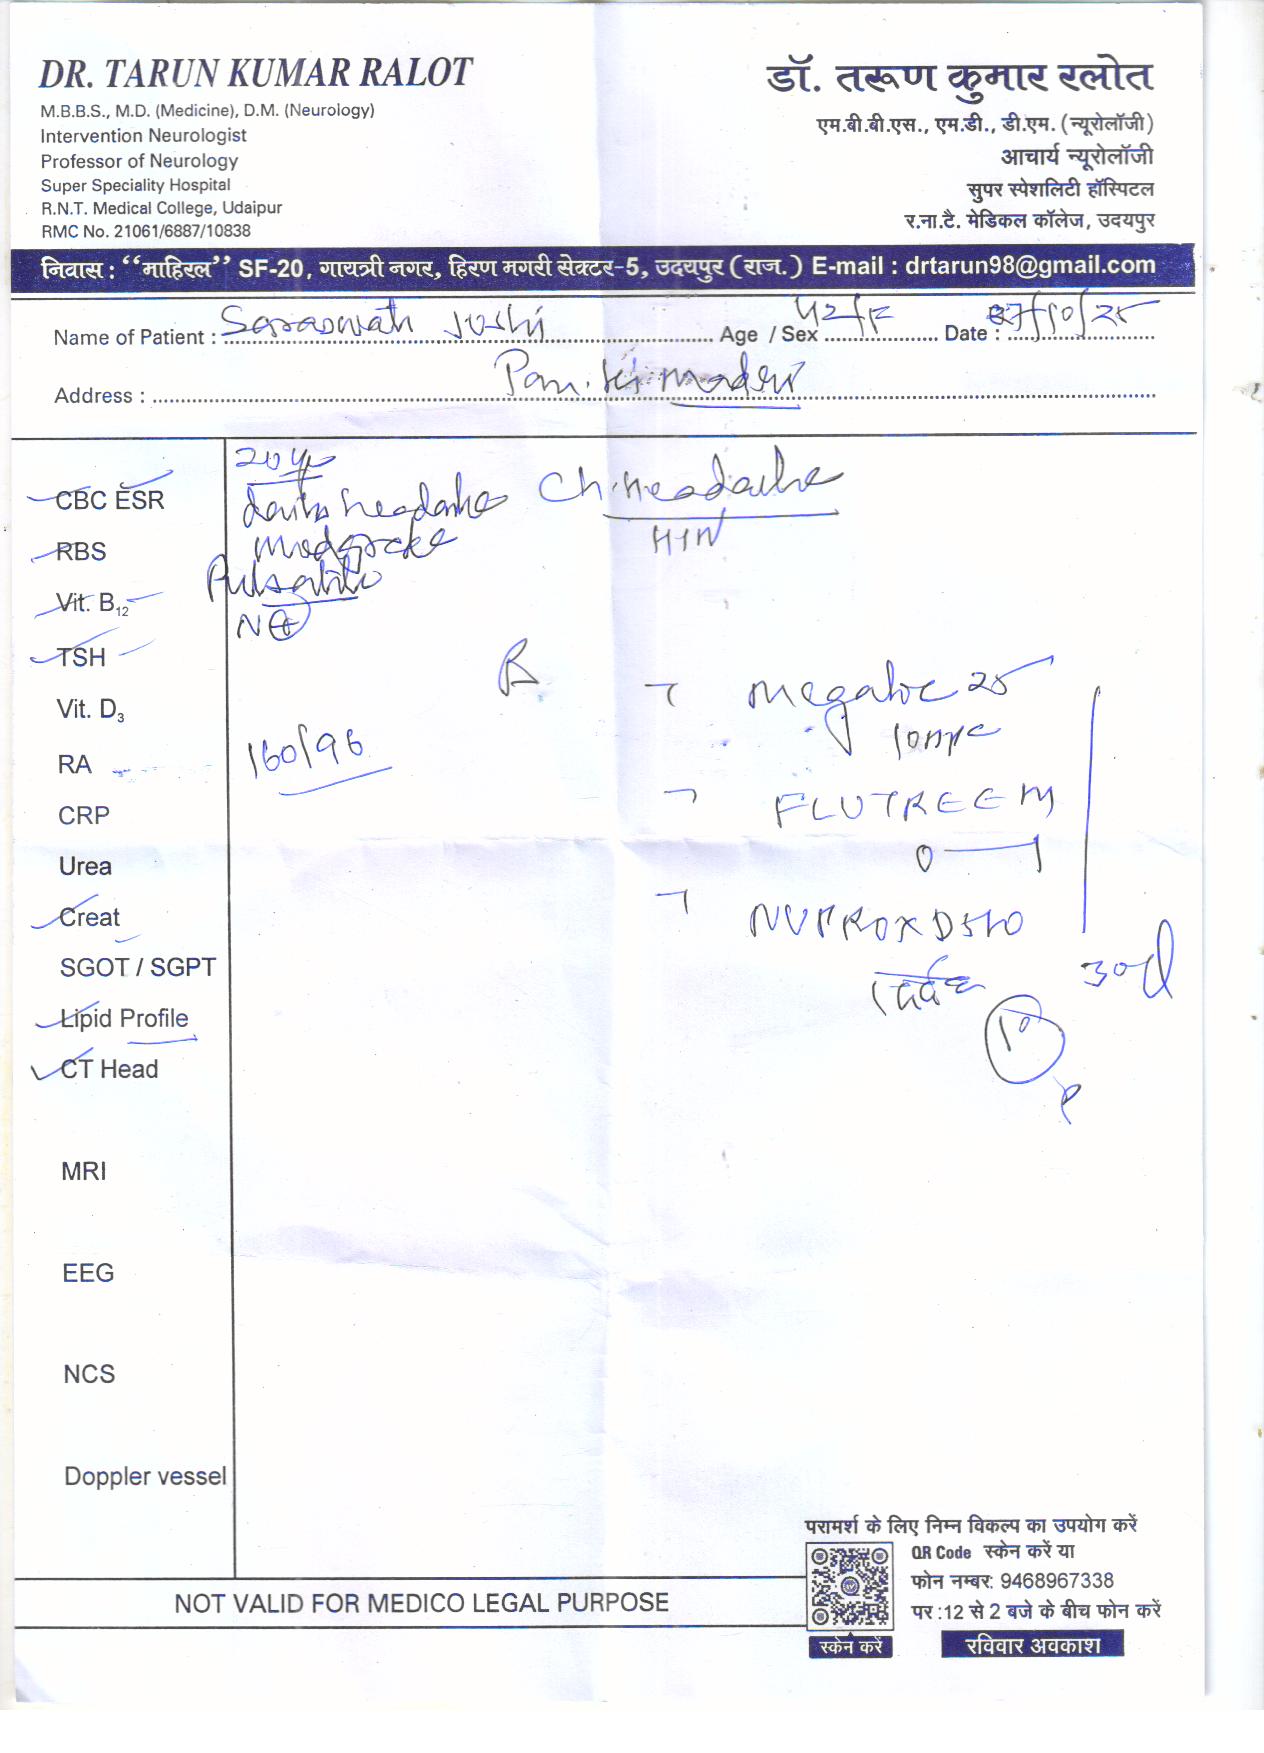 DR. TARUN KUMAR RALOT
M.B.B.S., M.D. (Medicine), D.M. (Neurology)
Intervention Neurologist
Professor of Neurology
Super Speciality Hospital
R.N.T. Medical College, Udaipur
RMC No. 21061/6887/10838
डॉ. तरूण कुमार रलोत
एम.बी.बी.एस., एम.डी., डी.एम. (न्यूरोलॉजी)
आचार्य न्यूरोलॉजी
सुपर स्पेशलिटी हॉस्पिटल
र.ना.टै. मेडिकल कॉलेज, उदयपुर
निवास : “माहिरल” SF-20, गायत्री नगर, हिरण मगरी सेक्टर-5, उदयपुर (राज.) E-mail : drtarun98@gmail.com
Name of Patient : Saraswati Joshi Age / Sex 42/F Date : 27/10/25
Address :
CBC ESR
RBS
Vit. B12
TSH
Vit. D3
RA
CRP
Urea
Creat
SGOT / SGPT
Lipid Profile
CT Head
MRI
EEG
NCS
Doppler vessel
headache
Ch. Headache
HTN
Pulsatile
160/96
25
FLUTREEM
0 — 1
30d
10
NOT VALID FOR MEDICO LEGAL PURPOSE
परामर्श के लिए निम्न विकल्प का उपयोग करें
QR Code स्केन करें या
फोन नम्बर: 9468967338
पर :12 से 2 बजे के बीच फोन करें
स्केन करें
रविवार अवकाश